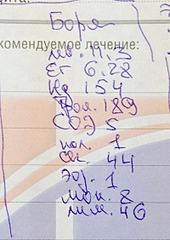 Боря
комендуемое лечение:
Er 6.28
Hg 154
189
СОЭ 5
пол. 1
сег. 44
Эоз. 1
мон. 8
лим. 46